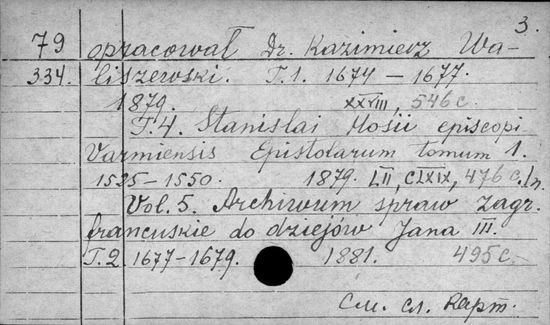 3.
79 opracował Dr. Kazimierz Wa-
334. liszewski. T.1. 1674 – 1677.
1879. XXVIII, 546 c.
T.4. Stanislai Hosii episcopi
Varmiensis Epistolarum tomum 1.
1525–1550. 1879. LII, CLXIX, 476 c.
Vol. 5. Archiwum spraw zagr.
francuskie do dziejów Jana III.
T.2. 1677–1679. 1881. 495 c.
См. сл. карт.